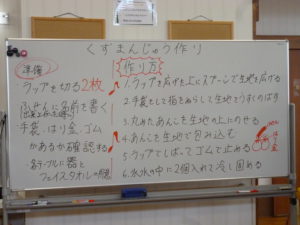 くずまんじゅう作り
準備
ラップを切る2枚
ふせんに名前を書く
手袋、はり金、ゴム
があるか確認する
各テーブルに器と
フェイスタオルの用意
作り方
1.ラップを広げた上にスプーンで生地を広げる
2.手袋をして指をぬらして生地をうすくのばす
3.丸めたあんこを生地の上にのせる
4.あんこを生地で包み込む
5.ラップでしばってゴムで止める
6.氷水の中に2個入れて冷し固める